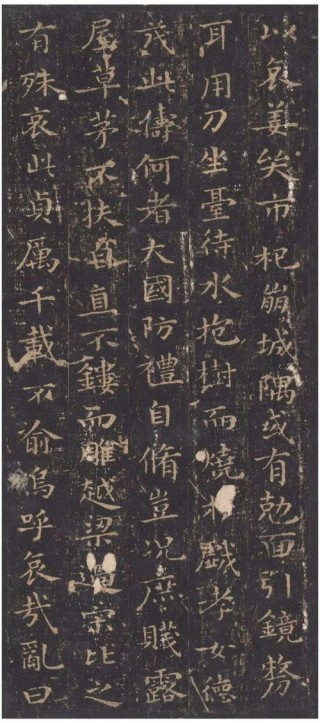 以哀姜哭市杞崩城隅或有勊面引鏡剺
耳用刀坐臺待水抱樹而燒於戲孝女德
茂此儔何者大國防禮自脩豈況庶賤露
屋草茅不扶自直不鏤而雕越梁過宋比之
有殊哀此貞厲千載不渝嗚呼哀哉亂曰